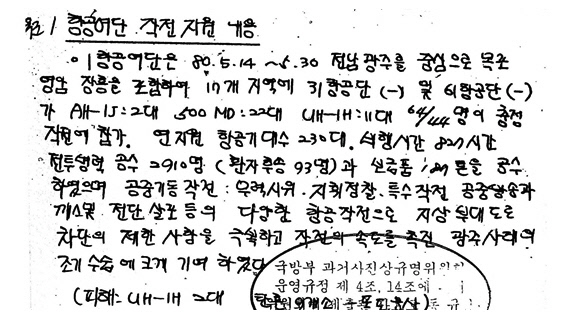 1 항공여단 작전 지원 내용
○ 1항공여단은 80. 5. 14 ~ 5. 30 전남 광주를 중심으로 목포
영암 장흥을 포함하여 17개 지역에 31항공단 (-) 및 61항공단 (-)
가 AH-1J : 2대 500 MD : 22대 UH-1H : 11대 64/144 명이 충정
작전에 참가. 연 지원 항공기 대수 230대. 비행시간 827시간
전투병력 공수 2910명 (환자후송 93명)과 보급품 톤을 공수
하였으며 공중기동작전 : 무력시위. 지휘정찰. 특수작전 공중방송과
개스및 전단 살포 등의 다양한 항공작전으로 지상 부대 도로
차단의 제한 사항을 극복하고 작전의 속도를 촉진 광주사태의
조기 수습에 크게 기여 하였다
국방부 과거사진상규명위원회
운영규정 제 4조, 14조에
(피해 : UH-1H 2대